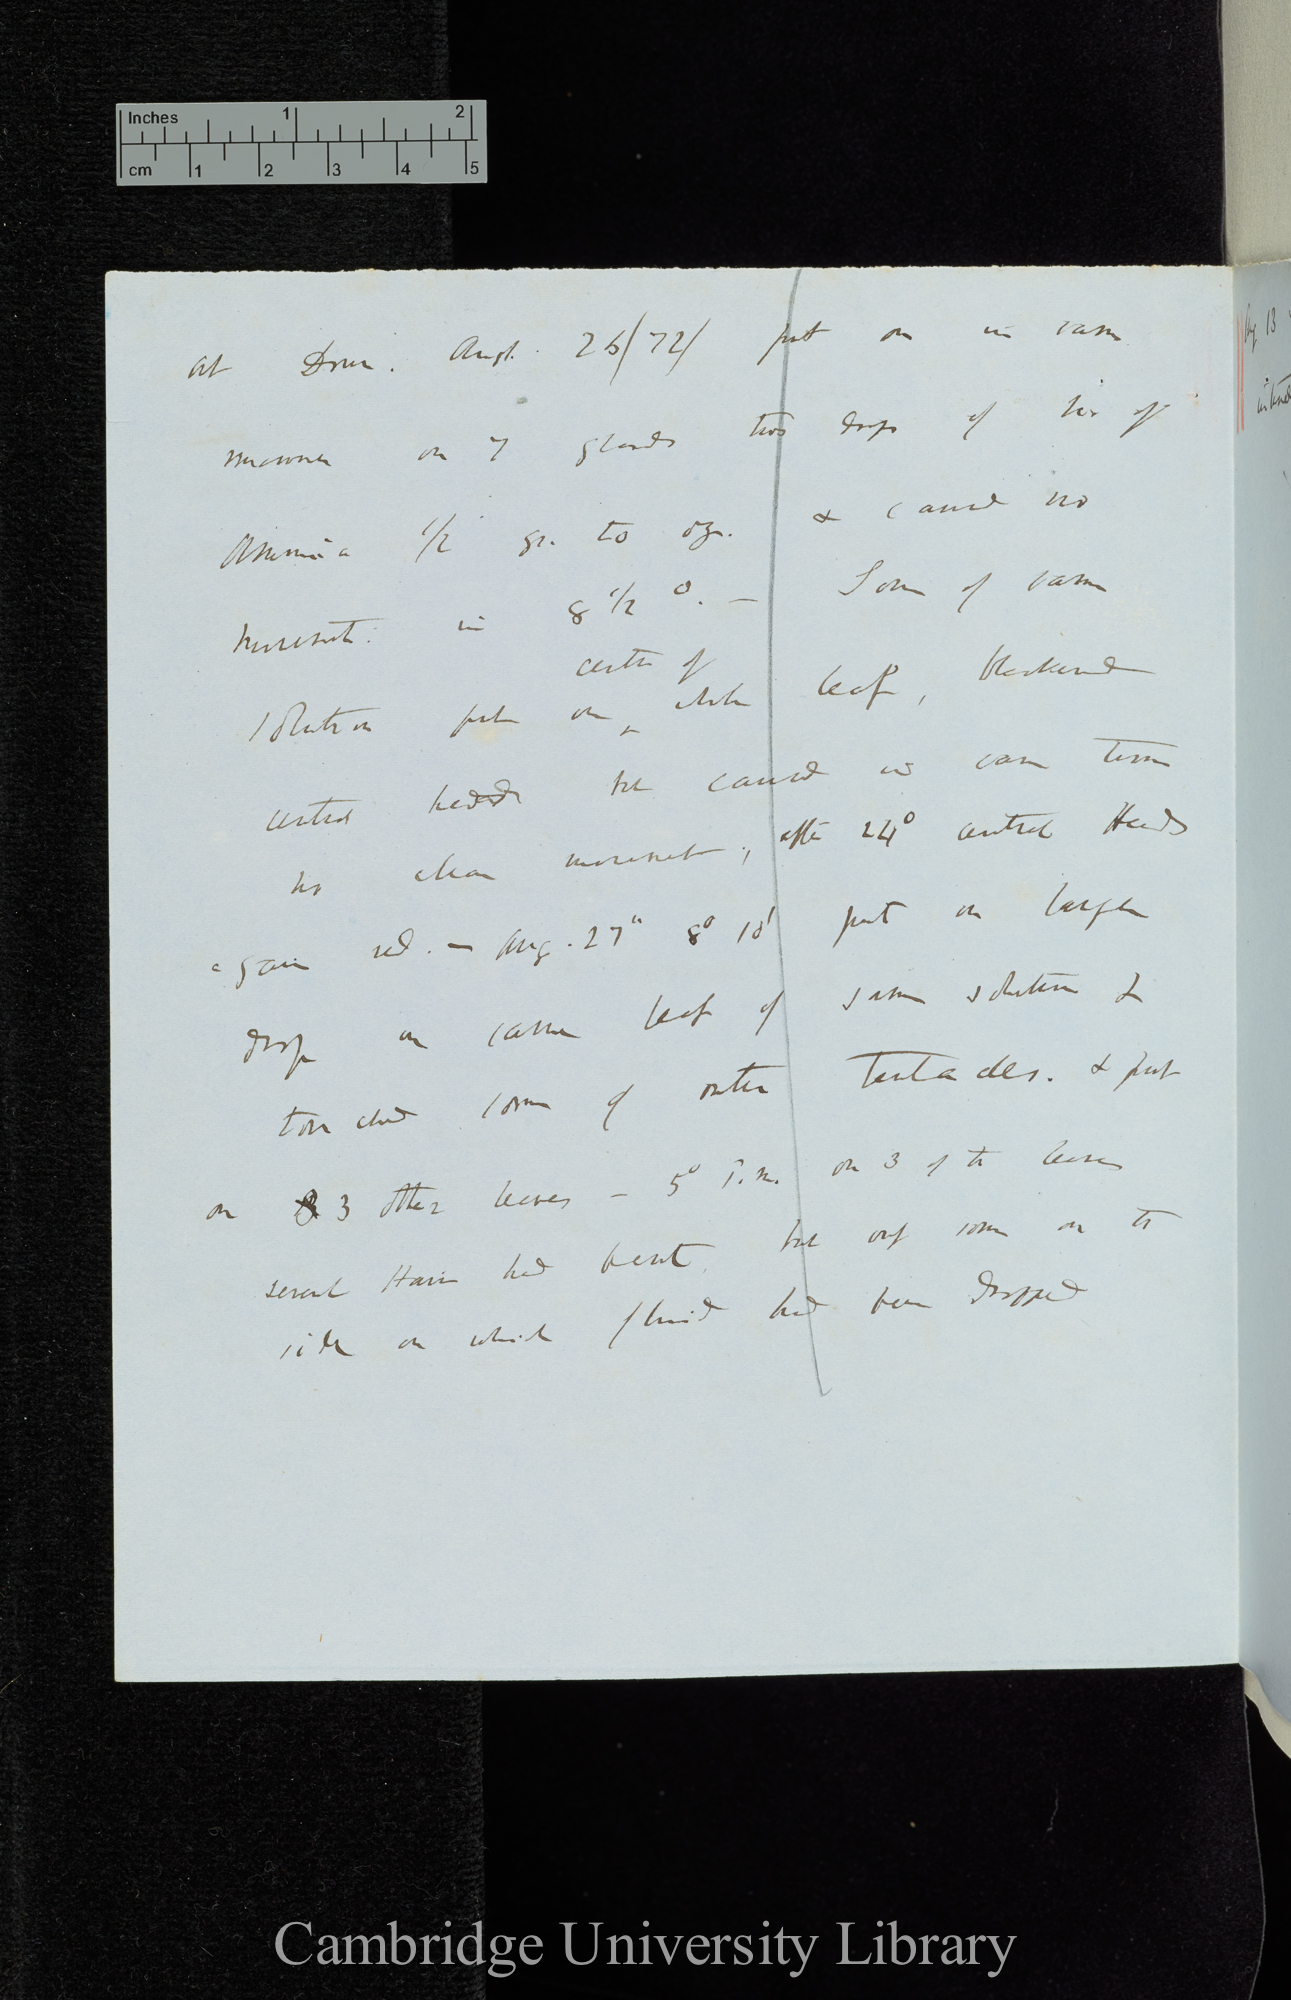 Inches 1 2
cm 1 2 3 4 5
at Down. Augt. 26/72/ put on in same
manner on 7 glands two drops of of
Ammonia 1/2 gr. to oz. & caused no
movement. in 8 1/2 °. — Some of same
centre of
solution put on ‸ whole leaf, blackened
central heads but caused in same time
no clear movement; after 24° central Heads
again red. — Aug. 27" 8° 10' put on larger
drop on same leaf of same solution &
touched some of outer tentacles. & put
on 3 other leaves — 5° P.m. on 3 of the leaves
several Hairs had bent, but only some on the
side on which fluid had been dropped
Aug 13
Cambridge University Library